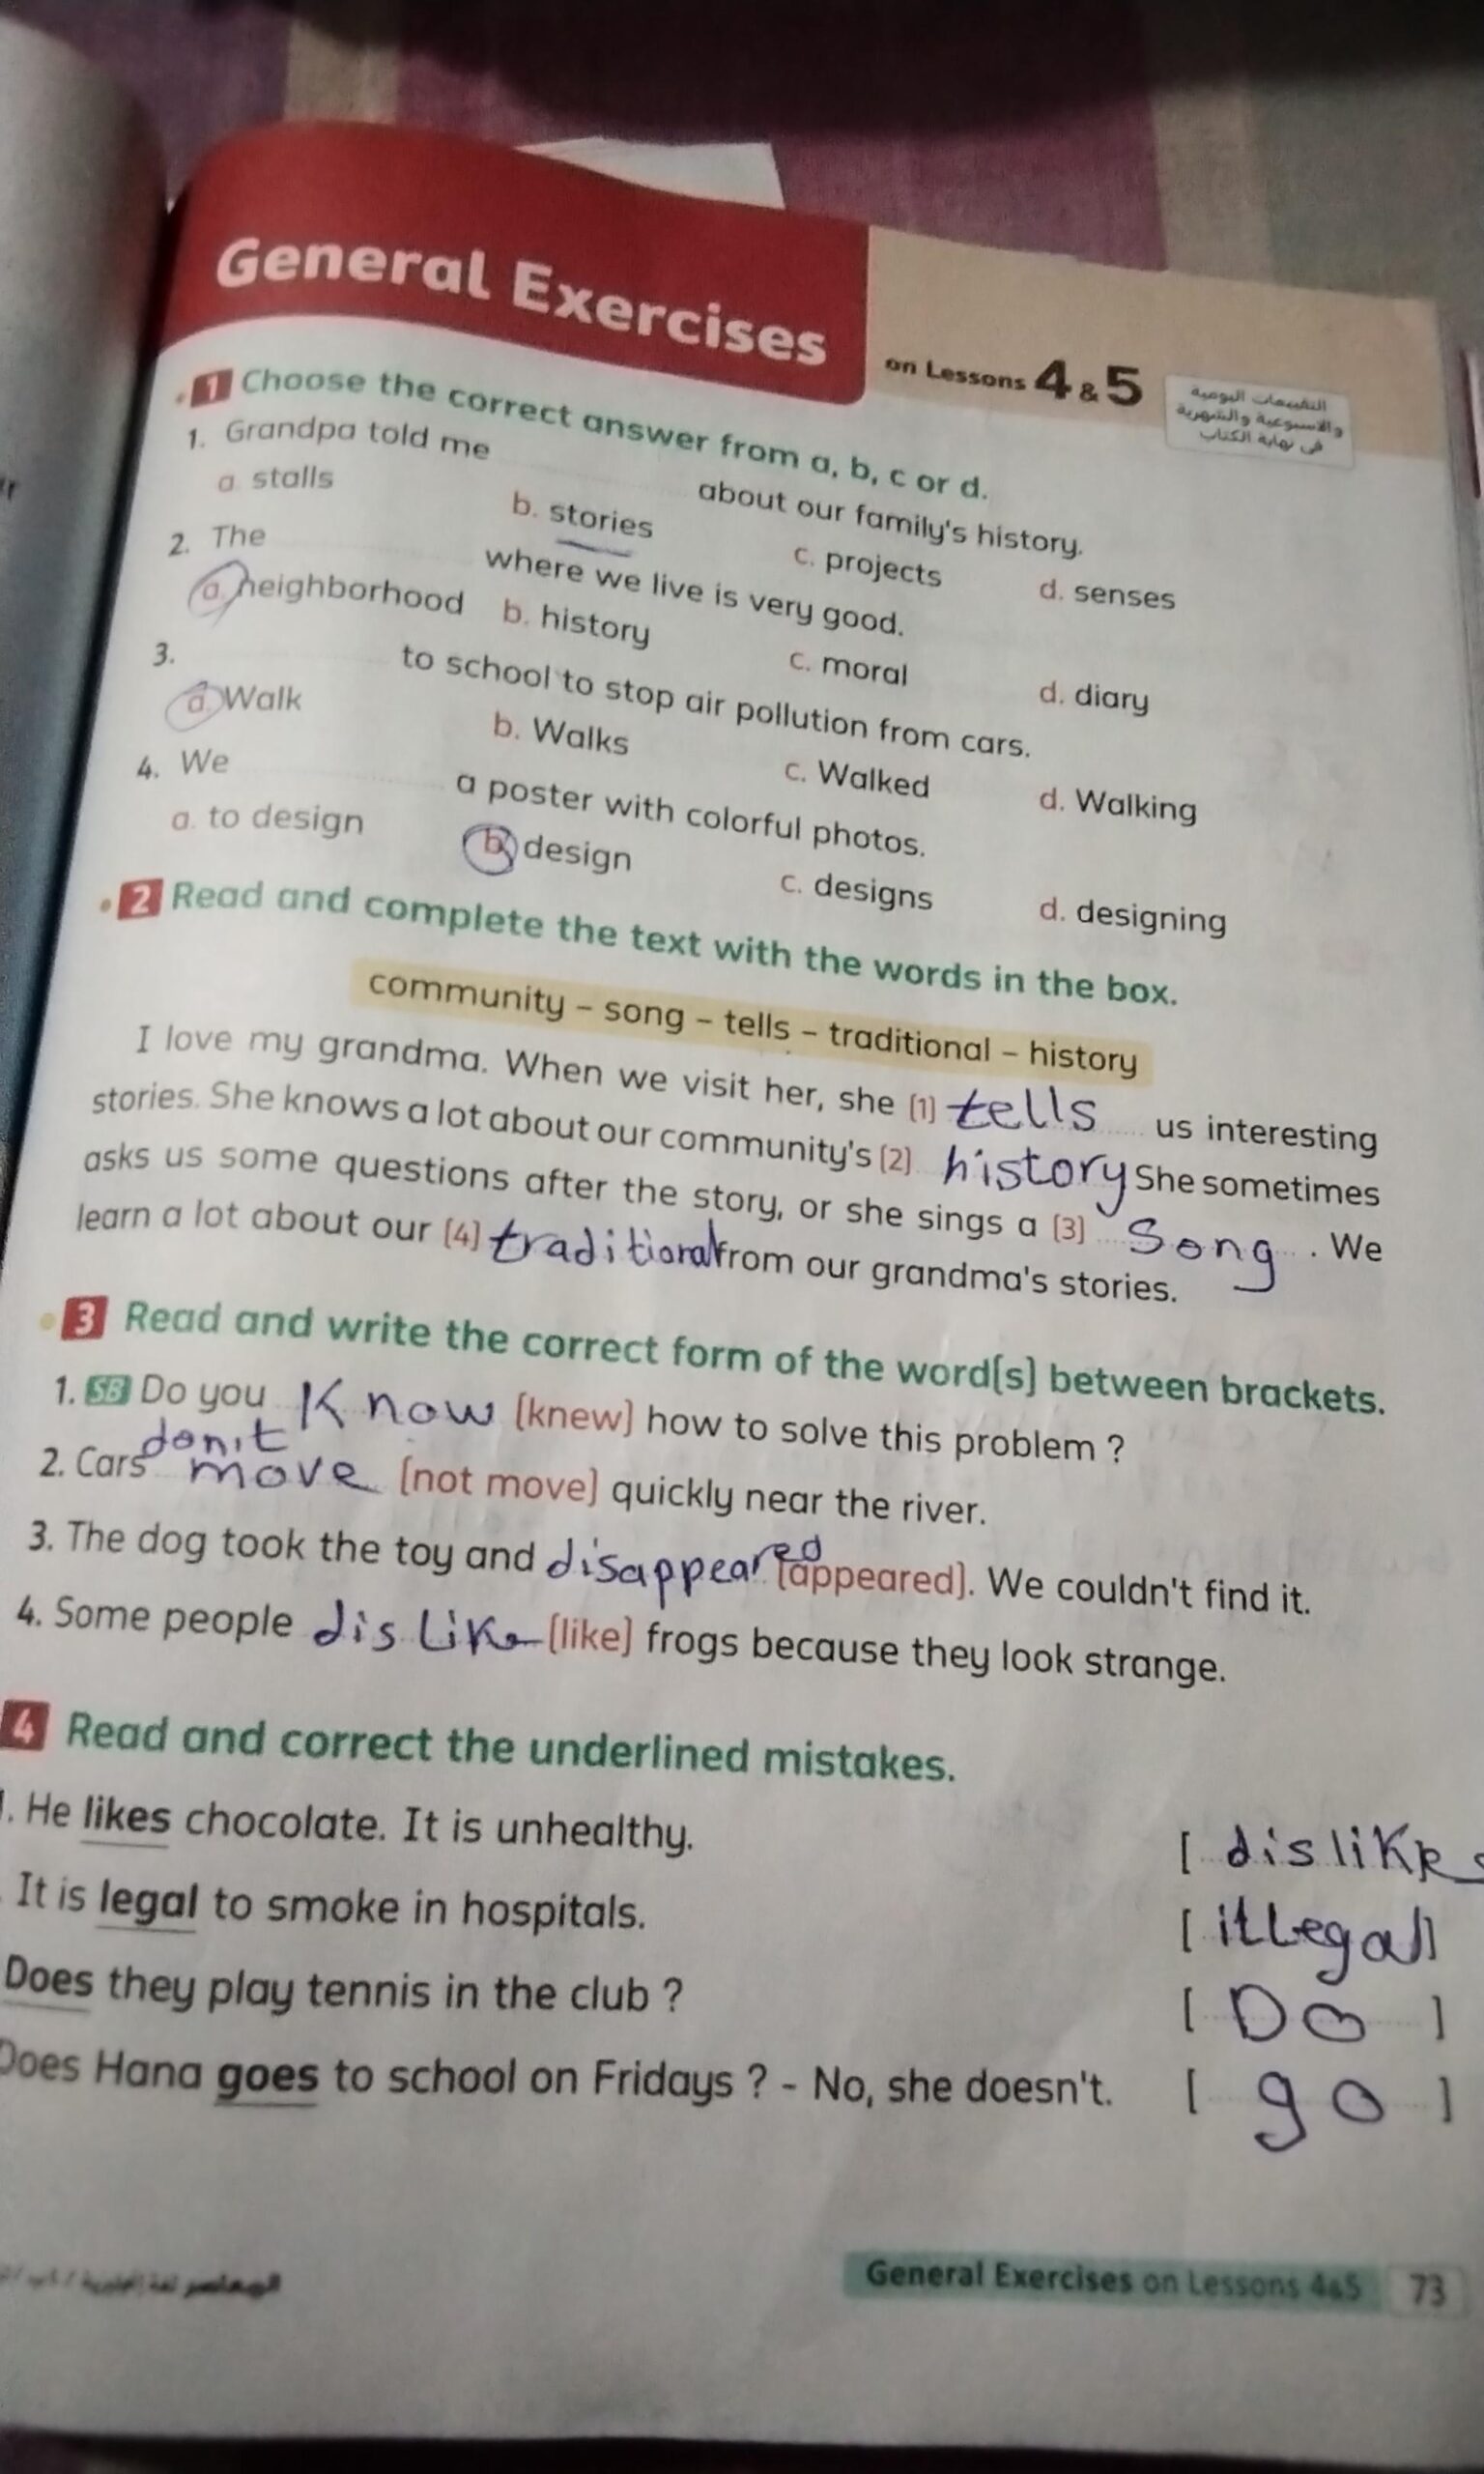 General Exercises
on Lessons 4 & 5
التقييمات اليومية
والأسبوعية والشهرية
فى نهاية الكتاب
1 Choose the correct answer from a, b, c or d.
1. Grandpa told me about our family's history.
a. stalls b. stories c. projects d. senses
2. The where we live is very good.
a. neighborhood b. history c. moral d. diary
3. to school to stop air pollution from cars.
a. Walk b. Walks c. Walked d. Walking
4. We a poster with colorful photos.
a. to design b. design c. designs d. designing
2 Read and complete the text with the words in the box.
community – song – tells – traditional – history
I love my grandma. When we visit her, she (1) tells us interesting
stories. She knows a lot about our community's (2) history She sometimes
asks us some questions after the story, or she sings a (3) Song . We
learn a lot about our (4) traditional from our grandma's stories.
3 Read and write the correct form of the word(s) between brackets.
1. SB Do you Know (knew) how to solve this problem ?
2. Cars don't move (not move) quickly near the river.
3. The dog took the toy and disappeared (appeared). We couldn't find it.
4. Some people dislike (like) frogs because they look strange.
4 Read and correct the underlined mistakes.
. He likes chocolate. It is unhealthy. [ dislikes
. It is legal to smoke in hospitals. [ illegal ]
Does they play tennis in the club ? [ Do ]
Does Hana goes to school on Fridays ? - No, she doesn't. [ go ]
General Exercises on Lessons 4&5 73